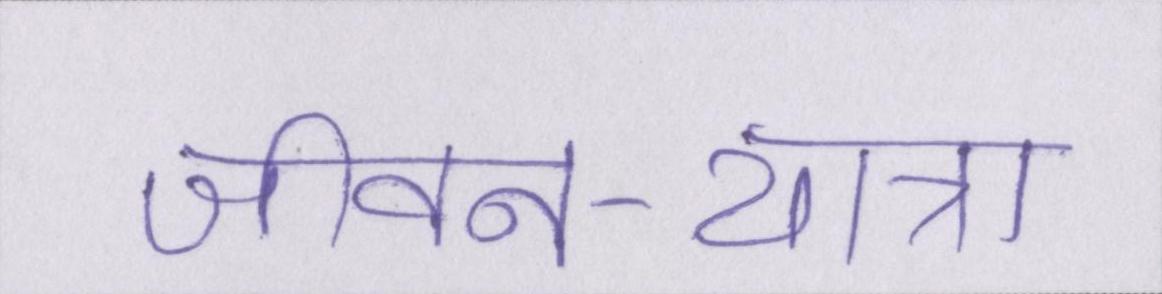 जीवन-यात्रा